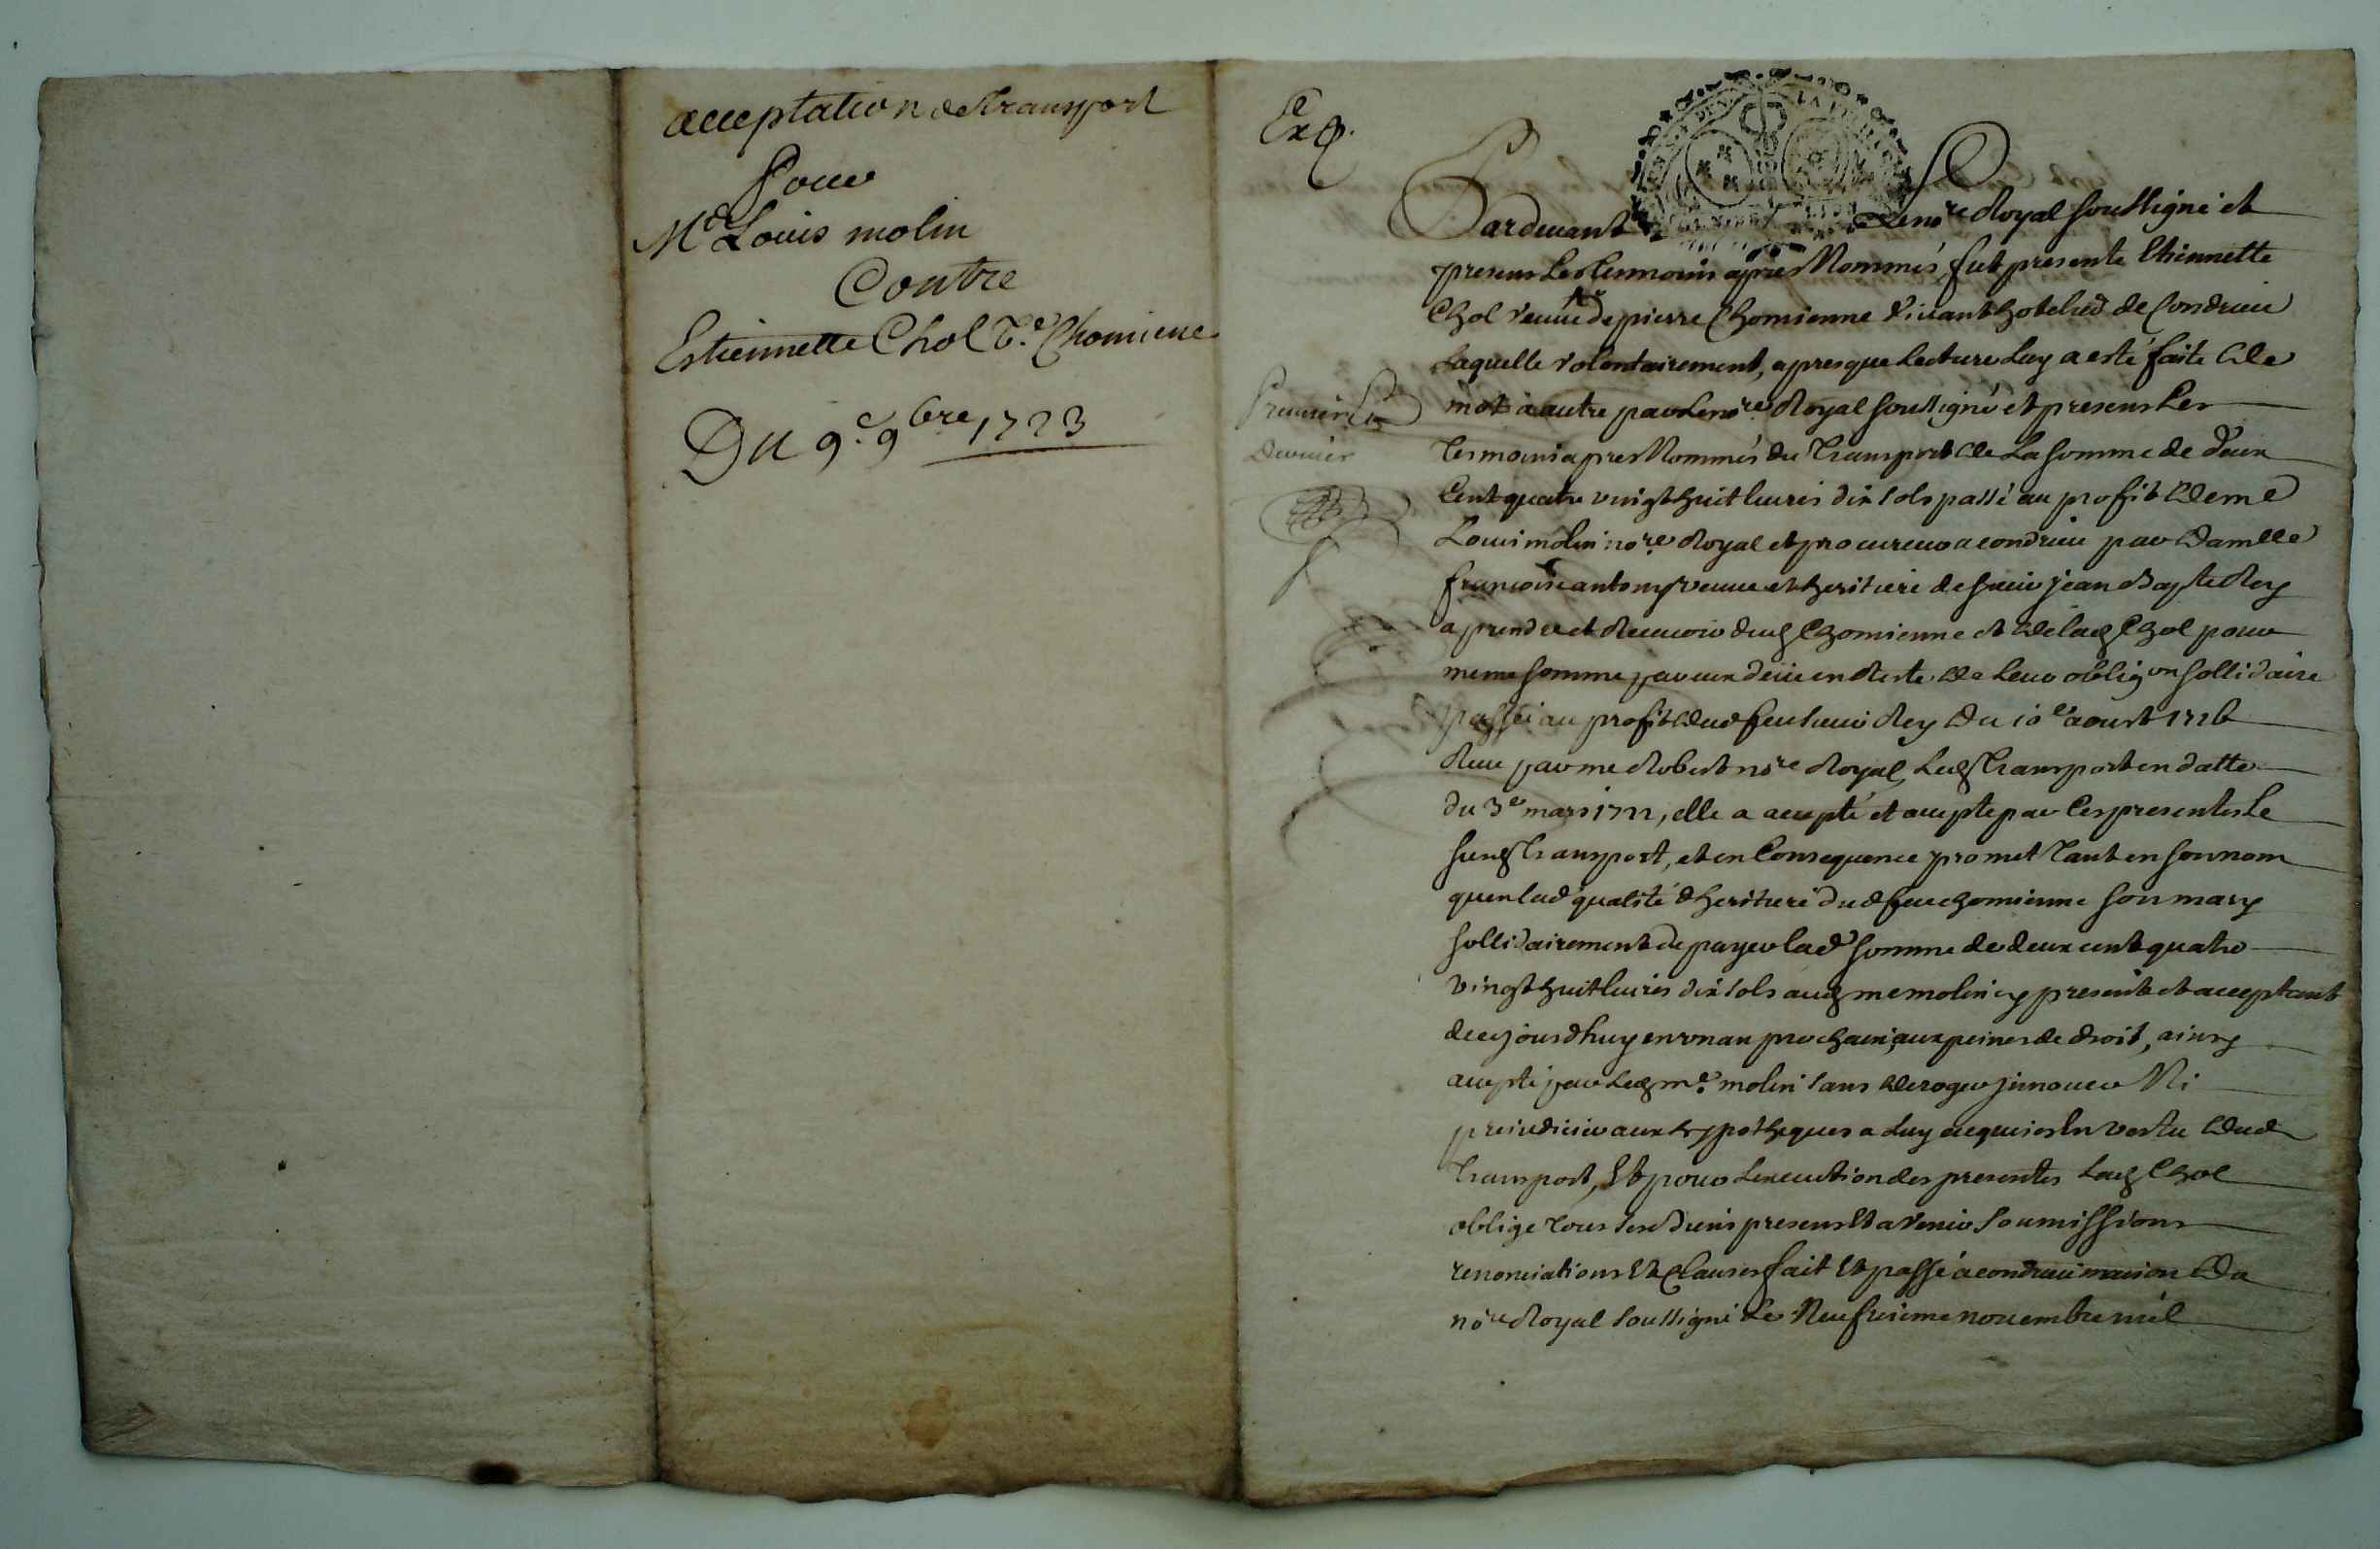 acceptation de transport
Pour
Me Louis molin
Contre
Estiennette Chol Ve. Chomiene
Du 9e. 9bre 1723
Exp.
Premier
Dernier
Pardevant Le nore Royal soussigné et
presens Les tesmoins apres Nommés, fut presente Etiennette
Chol veuve de pierre Chomienne vivant hotelier de Condrieu
Laquelle volontairement, apres que Lecture Luy a esté faite de
mot a autre par Le nore Royal soussigné et presens Les
tesmoins apres Nommés du transport de La somme de deux
Cent quatre vingt huit livres dix sols passé au profit de me
Louis molin nore Royal et procureur a condrieu par Damlle
francoise antomy veuve et heritiere de sieur jean Bapte Rey
a prendre et Recevoir dud Chomienne et de lad Chol pour
meme somme par eux deüe en Reste de Leur obligon sollidaire
passée au profit dud feu sieur Rey Du 10e aoust 1716
Receu par me Robert nore Royal, Led transport en datte
du 3e mars 1722, elle a accepté et accepte par Ces presentes Le
susd transport, et en Consequence promet tant en son nom
quen lad qualité dheritiere dud feu chomienne son mary
sollidairement de payer lad somme de deux cent quatre
vingt huit livres dix sols aud me molin cy present et acceptant
de ce jourdhuy en un an prochain, aux peines de droit, ainsy
accepté par Led me. molin sans deroger jnnover Ni
preiudicier aux hypotheques a Luy acquises En vertu dud
transport, Et pour Lexecution des presentes Lad Chol
oblige tous ses biens presens Et a venir soumissions
renonciations Et Clauses fait Et passé a condrieu maison Du
nore Royal soussigné Le Neufvieme novembre mil